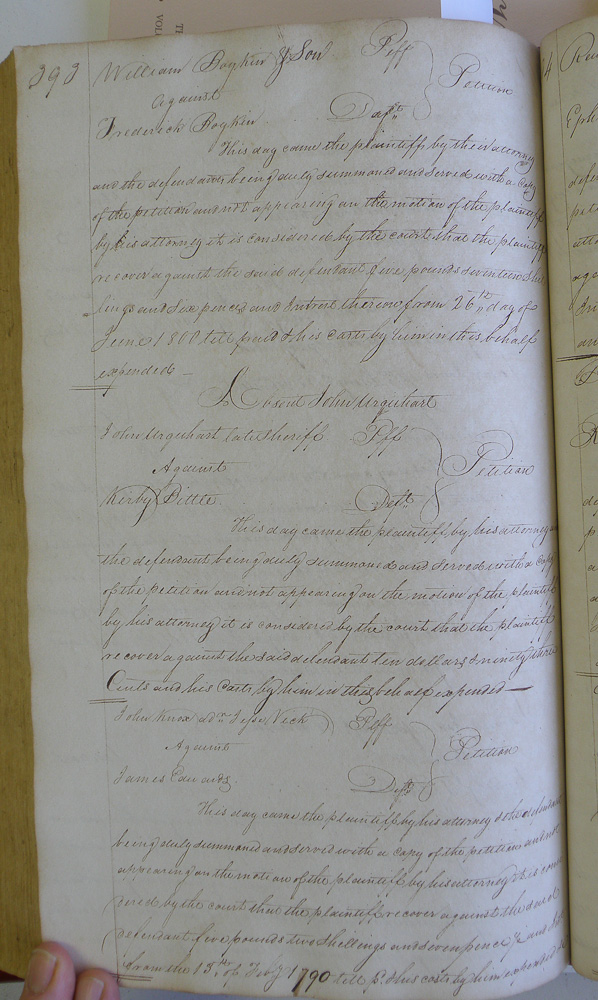 393 William Boykin & Son Plff
Against Petition
Frederick Boykin Deft
This day came the plaintiff by their attorney
and the defendant being duly summoned and served with a Copy
of the petition and not appearing on the motion of the plaintiff
by his attorney it is considered by the court that the plaintiff
recover against the said defendant five pounds seventeen shil
lings and six pence and Intrest thereon from 26th day of
June 1800 till paid & his Costs by him in this behalf
expended —
Absent John Urquhart
John Urquhart late Sheriff Plff
Against Petition
Kerby Bittle Deft
This day came the plaintiff by his attorney
the defendant being duly summoned and served with a Copy
of the petition and not appearing on the motion of the plaintiff
by his attorney it is considered by the court that the plaintiff
recover against the said defendant ten dollars & ninety three
Cents and his Costs by him in this behalf expended —
John Knox adr Jesse Vick Plff
Against Petition
James Edwards Deft
This day came the plaintiff by his attorney & the defendant
being duly summoned and served with a copy of the petition and not
appearing on the motion of the plaintiff by his attorney it is consi
dered by the court that the plaintiff recover against the said
defendant five pounds two shillings and seven pence and
from the 13th of Feby 1790 till pd & his costs by him expended